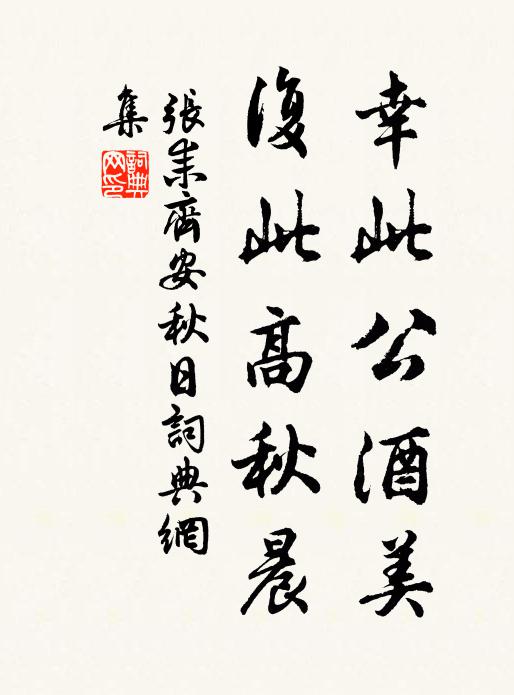 幸此公酒美
復此高秋晨
張耒齊安秋日詞典網
集
詞典网印